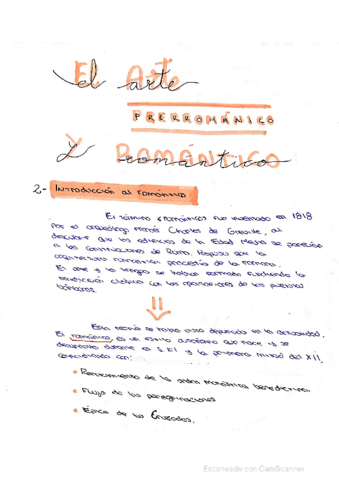 El arte
PRERROMÁNICO
Y ROMÁNTICO
2- Introducción al románico
El término «románico» fue inventado en 1818
por el arqueólogo francés Charles de Gerville, al
descubrir que los edificios de la Edad Media se parecían
a las construcciones de Roma. Pensaba que la
arquitectura románica procedía de la romana.
El arte y la lengua se habían formado fundiendo la
tradición clásica con las de los pueblos
bárbaros.
Esta teoría se ha en la actualidad.
El románico es un estilo que nace y se
desarrolla durante el s. XI y la primera mitad del XII
coincidiendo con:
Renacimiento de la orden monástica benedictina.
Flujo de las peregrinaciones
Época de las Cruzadas.
Escaneado con CamScanner